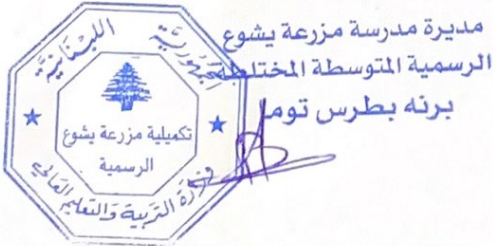 مديرة مدرسة مزرعة يشوع
الرسمية المتوسطة المختلطة
برنه بطرس توما
الجمهورية اللبنانية
تكميلية مزرعة يشوع
الرسمية
وزارة التربية والتعليم العالي